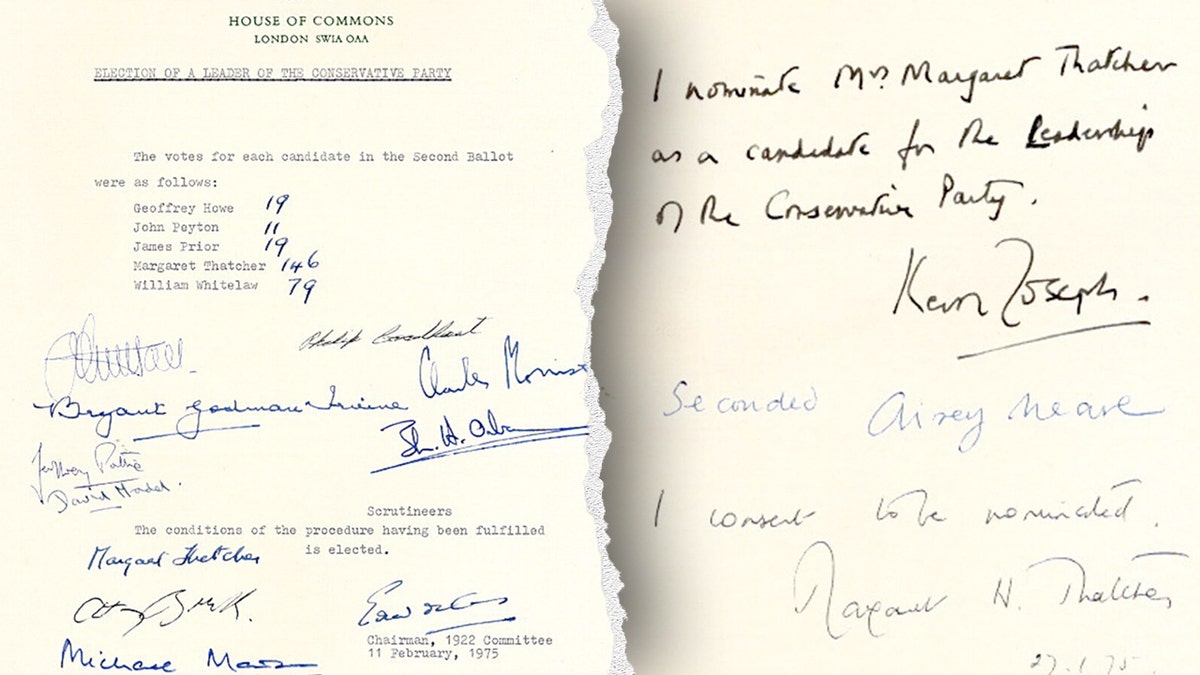 HOUSE OF COMMONS
LONDON SW1A 0AA
ELECTION OF A LEADER OF THE CONSERVATIVE PARTY
The votes for each candidate in the Second Ballot
were as follows:
Geoffrey Howe 19
John Peyton 11
James Prior 19
Margaret Thatcher 146
William Whitelaw 79
Philip Goodhart
Charles Morrison
Bryant Godman Irvine
Geoffrey Pattie
David Madel.
Scrutineers
The conditions of the procedure having been fulfilled
Margaret Thatcher is elected.
Chairman, 1922 Committee
11 February, 1975
Michael
I nominate Mrs Margaret Thatcher
as a candidate for the Leadership
of the Conservative Party.
Keith Joseph.
Seconded Airey Neave
I consent to be nominated.
Margaret H. Thatcher
27.1.75.